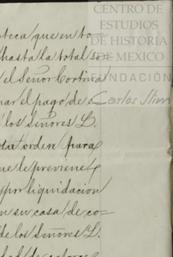 CENTRO DE
ESTUDIOS
DE HISTORIA
DE MEXICO
FUNDACIÓN
Carlos Slim
teca que en to
hasta la total so
el Señor Cortina
nar el pago de
los Señores L.
dia orden para
que le previene
por liquidacion
en su casa de co
de los Señores L.